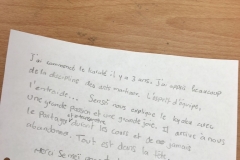 J'ai commencé le karaté il y a 3 ans. J'ai appris beaucoup
de la discipline des arts martiaux. L'esprit d'équipe,
l'entraide... Senseï nous explique le karaté avec
Une grande passion et une grande joie. Il arrive à nous
le partager durant les cours et de ne jamais
abandonner. Tout est dans la tête.
Merci Senseï